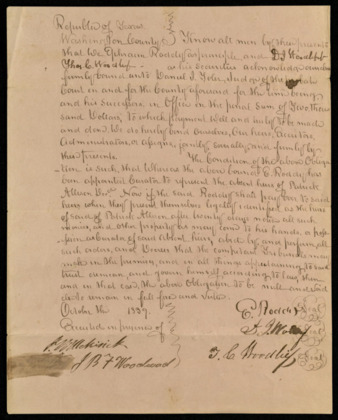 Republic of Texas
Washington County } Know all men by these presents
that We Ephraim Roddy as principal and D J Woodlief
Thos C. Woodlief as his securities acknowledge ourselves
firmly bound unto Daniel J. Toler, Judge of the
Court in and for the County aforesaid for the time being
and his successors in Office in the penal sum of Two thou
sand Dollars, to which payment Well and truly to be made
and done We do hereby bind ourselves, Our heirs, Executors
Administrators or assigns, jointly, severally, and firmly by
these presents. The Condition of the above Obliga-
tion is such, that Whereas the above bound E. Roddy has
been appointed to represent the absent heirs of Patrick
Allison Now if the said Roddy shall pay over to said
heirs when they present themselves legally
of said Patrick Allison after twenty days notice all such
monies, and other property as may come to his hands, a
of said absent heirs, abide by and perform, all
such orders, and Decrees that the Court
make in the premises, and in all things appertaining to said
according to law, then
and in that case, the above Obligation to be null and void
else to remain in full force and virtue.
October the 1837.
Executed in presence of
E. Roddy Seal
D. J. Woodlief Seal
T. C. Woodlief Seal
J B F Woodward